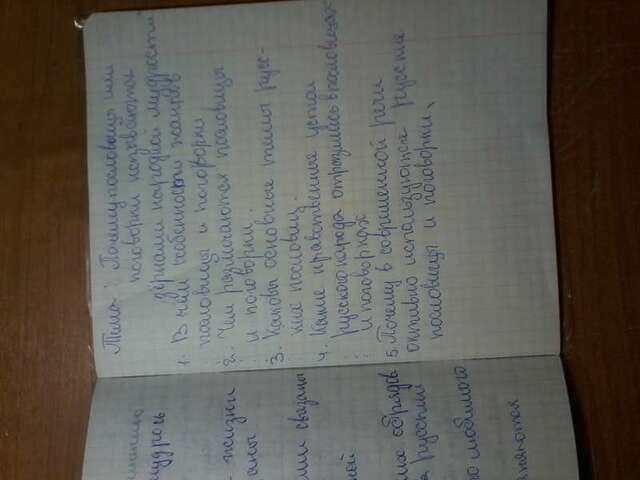 шению
мудрость
жизни
ены
ими связаны
ной
ких обрядов
русский
го любимого
Тема: Почему пословицы или
поговорки называются
зёрнами народной мудрости.
1. В чём особенности жанров
пословицы и поговорки
2. Чем различаются пословицы
и поговорки.
3. Каковы основные темы русс-
ких пословиц.
4. Какие нравственные устои
русского народа отразились в пословицах
и поговорках
5. Почему в современной речи
активно используются русские
пословицы и поговорки.